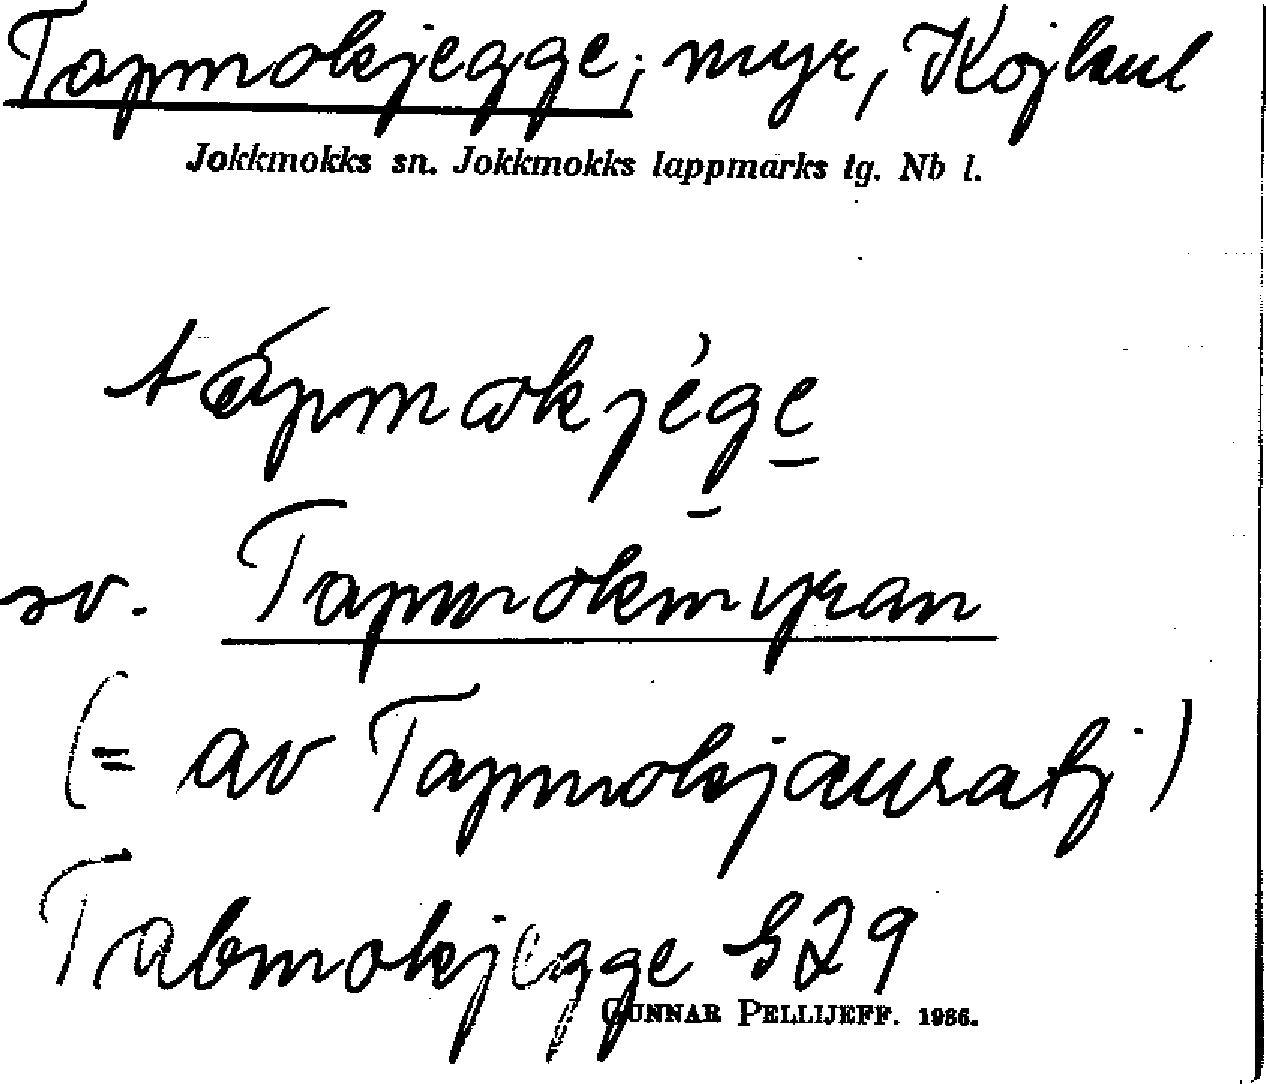 Tapmokjegge, myr, Kojkul
Jokkmokks sn. Jokkmokks lappmarks tg. Nb l.
tápmɷkjège
sv. Tapmokmyran
(= av Tapmokjauratj)
Tabmokjegge S29
GUNNAR PELLIJEFF. 1966.